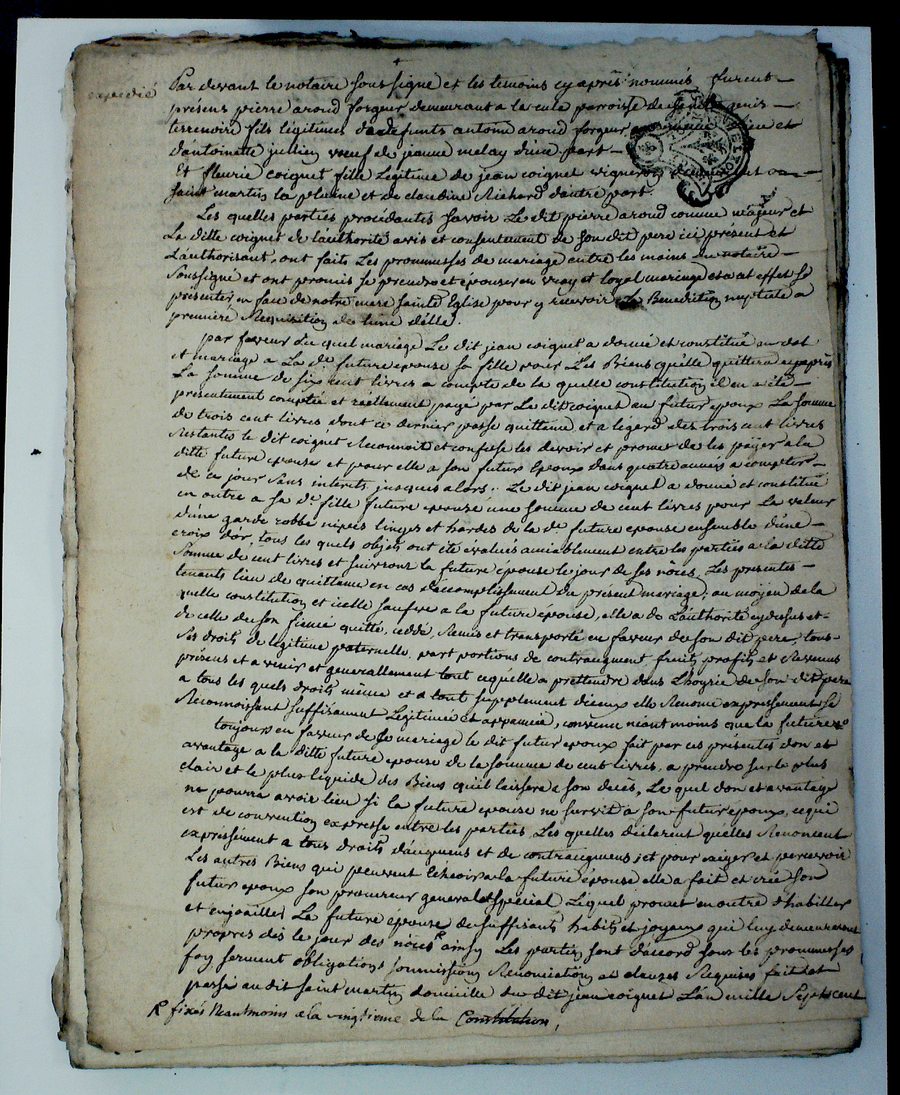 expedié
Par devant le notaire soussigné et les temoins cy après nommés furent
présens pierre aroud forgeur demeurant a la cula paroisse de saint genis
terrenoire fils légitime a defunts antoine aroud forgeur et
d'antoinette jullien veuf de jeanne melay d'une part
Et fleurie coignet fille Legitime de jean coignet vigneron demeurant
saint martin la plaine et de claudine Richard d'autre part
Les quelles parties procédantes savoir Le dit pierre aroud comme majeur et
La ditte coignet de l'authorité avis et consentement de son dit pere ici présent et
L'authorisant, ont faits Les prommesses de mariage entre les mains du notaire
soussigné et ont promis se prendre et épouser en vray et loyal mariage et a cet effet se
présenter en face de notre mere sainte Eglise pour y recevoir la Benediction nuptiale a
premiere Requisition de l'une d'elle.
par faveur du quel mariage Le dit jean coignet a donné et constitué en dot
et mariage a La dte future epouse sa fille pour Les Biens qu'elle quittera cy après
La somme de six cent livres a compte de la quelle constitution il en a été
presentement compté et réellement payé par Le dit coignet au futur epoux La somme
de trois cent livres dont ce dernier passe quittance, et a legard des trois cent livres
Restantes le dit coignet Reconnoit et confesse les devoir et promet de les payer a la
ditte future epouse et pour elle a son futur Epoux dans quatre années a compter
de ce jour sans interets jusques alors. Le dit jean coignet a donné et constitué
en outre a sa dte fille future epouse une somme de cent livres pour La valeur
d'une garde robbe nipes linges et hardes de la dte future epouse ensemble d'une
croix d'or, tous les quels objets ont été evalués amiablement entre les parties a la ditte
somme de cent livres et suivront la future épouse le jour de ses nôces, Les presentes
tenants lieu de quittance en cas d'accomplissement du present mariage; au moyen de la
quelle constitution et icelle sauve a la future épouse, elle a de L'authorité cy dessus et
de celle de son fiancé quitté, ceddé, Remis et transporté en faveur de son dit pere, tous
ses droits de legitime paternelle, part portions de contraugment fruits profits et Revenus
présens et a venir et generallement tout ce quelle a prettendre dans L'hoyrie de son dit pere
a tous les quels droits même et a tout suplement d'iceux elle Renonce expressement se
Reconnoissant suffisament Legitimée et appanée, convenu néant moins que la future
toujours en faveur de ce mariage le dit futur epoux fait par ces présentes don et
avantage a la ditte future épouse de la somme de cent livres, a prendre sur le plus
clair et le plus liquide des Biens qu'il laissera a son decès, Le quel don et avantage
ne pourra avoir lieu si la future epouse ne survit a son futur epoux, ce qui
est de convention expresse entre les parties, Les quelles déclarent quelles Renoncent
expressement a tous droits d'augmens et de contraugmens; et pour exiger et percevoir
Les autres Biens qui peuvent Echeoir a la future épouse elle a fait et créé son
futur epoux son procureur general et spécial, Lequel promet en outre d'habiller
et enjoailler La future epouse de suffisants habits et joyaux qui luy demeureront
propres dès le jour des nôces ainsy Les parties sont d'accord sous les prommesses
foy serment obligations soumissions Renonciations et clauses Requises fait et
passé au dit saint martin domicille du dit jean coignet L'an mille sept cent
R fixés Neantmoins a la vingtieme de la Constitution,